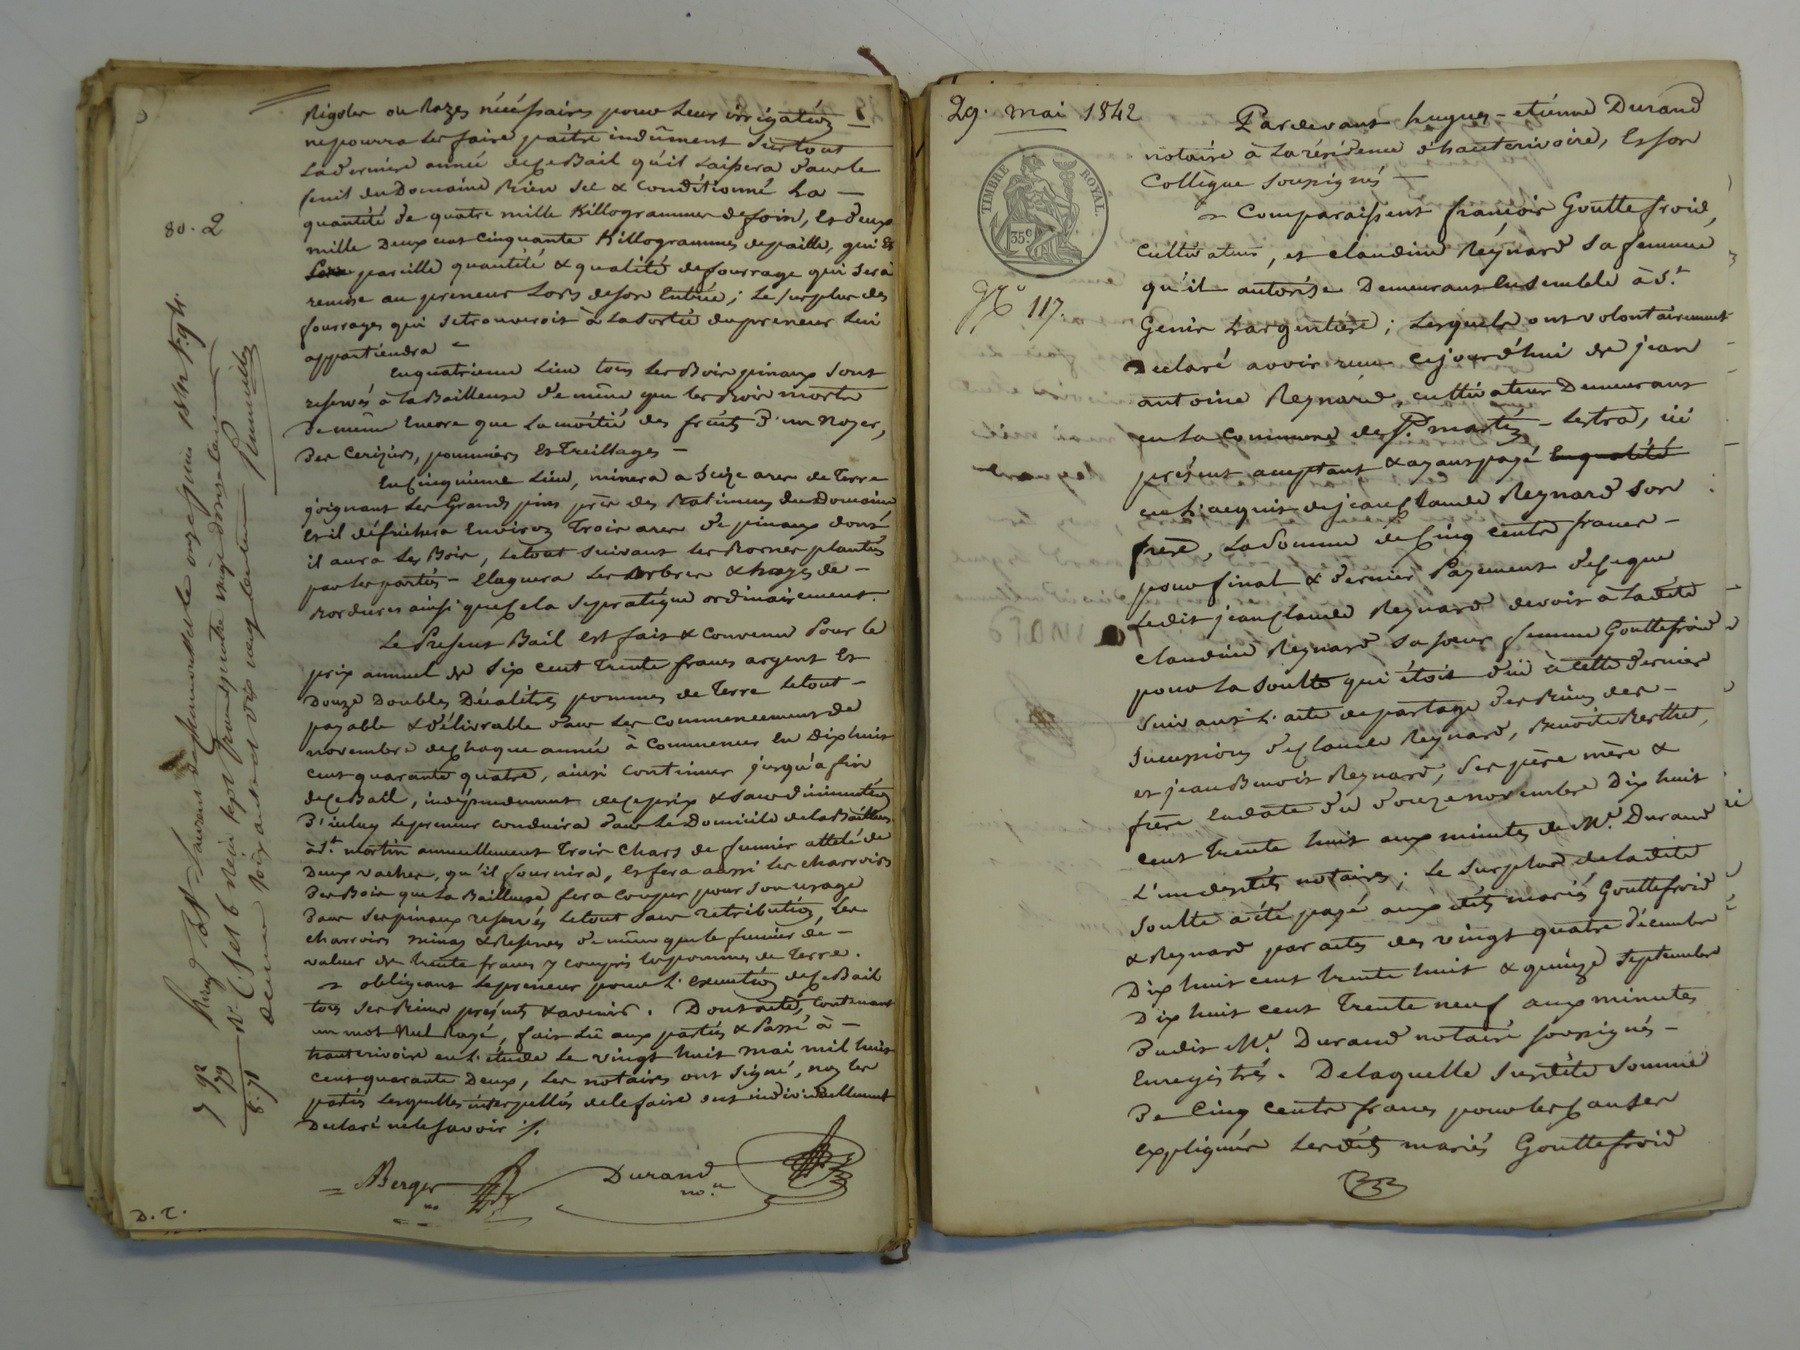 Rigoles ou Razes nécéssaires pour Leur irrigation
ne pourra les faire paître indûment surtout
La dernière année de ce Bail qu'il Laissera dans le
fenil du Domaine Bien sec & conditionné La —
quantité de quatre mille Killogrammes de foin, Et deux
mille Deux cent cinquante Killogrammes de paille, qui Est
pareille quantité & qualité de fourrage qui sera
remise au preneur Lors de son Entrée ; Le surplus des
fourrages qui se trouveroit à La sortie du preneur Lui
appartiendra —
En quatrieme Lieu tous Les Bois pinaux sont
reservés à La Bailleuse De même que les Bois morts
De même Encore que La moitié des fruits D'un Noyer,
Des Cerisiers, pommiers Et Treillages —
En Cinquieme Lieu, minera à seize ares de Terre
joignant Les Grands pins près des Batimens du Domaine
Et il défrichera Environ Trois ares de pinaux dont
il aura Les Bois, Le tout suivant Les Bornes plantées
par Les parties — Elaguera Les Arbres & hayes de —
Bordures ainsi que Cela se pratique ordinairement.
Le Présent Bail est fait & convenu Pour le
prix annuel de Six cent Trente francs argent Et
Douze Doubles Décalitres pommes de Terre Le tout —
payable & délivrable dans Les Commencements de
novembre de Chaque année à Commencer En Dix huit
cent quarante quatre, ainsi continuer jusqu'à fin
de Ce Bail, indépendamment de Ce prix & sans diminution
D'iceluy Le preneur conduira dans Le Domicile de La Bailleuse
à St. martin annuellement Trois Chars de fumier attelé de
Deux vaches, qu'il fournira, Et fera aussi Les charrois
Des Bois que La Bailleuse fera Couper pour son usage
Dans Ses pinaux reservés Le tout sans retribution, Les
charrois minas & Reserves De même que le fumier de —
valeur de trente francs y compris Les pommes de Terre.
obligeant Le preneur pour L'exécution de Ce Bail
tous ses Biens présents & avenir. Dont acte, Contenant
un mot Nul Rayé, fait Lû aux parties & Passé à —
hauterivoire en L'étude Le vingt huit mai mil huit
cent quarante Deux, Les notaires ont Signé, non Les
parties Lesquelles interpellées de le faire ont individuellement
Declaré ne le savoir ./.
Berger
no
Durand
no.re
D. C.
80. 2
Enreg. à St. Laurent de Chamousset le onze juin 1842 f.o 94
R.o C.es 6 Reçu sept francs quatre vingt douze centimes
Decime Soixante et dix neuf centimes
7 92
79
8.71
29. mai 1842
TIMBRE ROYAL.
35c
No 117.
Pardevant hugues - etienne Durand
notaire à La résidence d'hauterivoire, Et son
Collègue soussignés —
Comparaissent françois Gouttefroid,
Cultivateur, et claudine Reynard Sa femme
qu'il autorise Demeurant Ensemble à St.
Genis L'argentière ; Lesquels ont volontairement
Declaré avoir reçu cejourd'hui de jean
antoine Reynard, cultivateur Demeurant
en La Commune de St. martin - Lestra, ici
présent acceptant & ayant payé En qualité
en L'acquit de jean Claude Reynard son
frère, La Somme de Cinq cents francs —
pour final & dernier Payement de Ce que
Ledit jean Claude Reynard devoit à Ladite
Claudine Reynard Sa sœur femme Gouttefroid
pour La soulte qui étoit due à cette dernière
Suivant L'acte de partage des Biens des —
Successions de Claude Reynard, Benoite Berthet,
et jean Benoit Reynard, Ses père mère &
frère En date du douze novembre Dix huit
cent trente huit aux minutes de Me. Durand
L'un desdits notaires ; Le Surplus de Ladite
Soulte a été payé aux dits mariés Gouttefroid
& Reynard par actes des vingt quatre décembre
Dix huit cent trente huit & quinze septembre
Dix huit cent Trente neuf aux minutes
Dudit Me. Durand notaire soussignés —
Enregistrés. De laquelle Susdite Somme
De Cinq cents francs pour les Causes
expliquées Lesdits mariés Gouttefroid